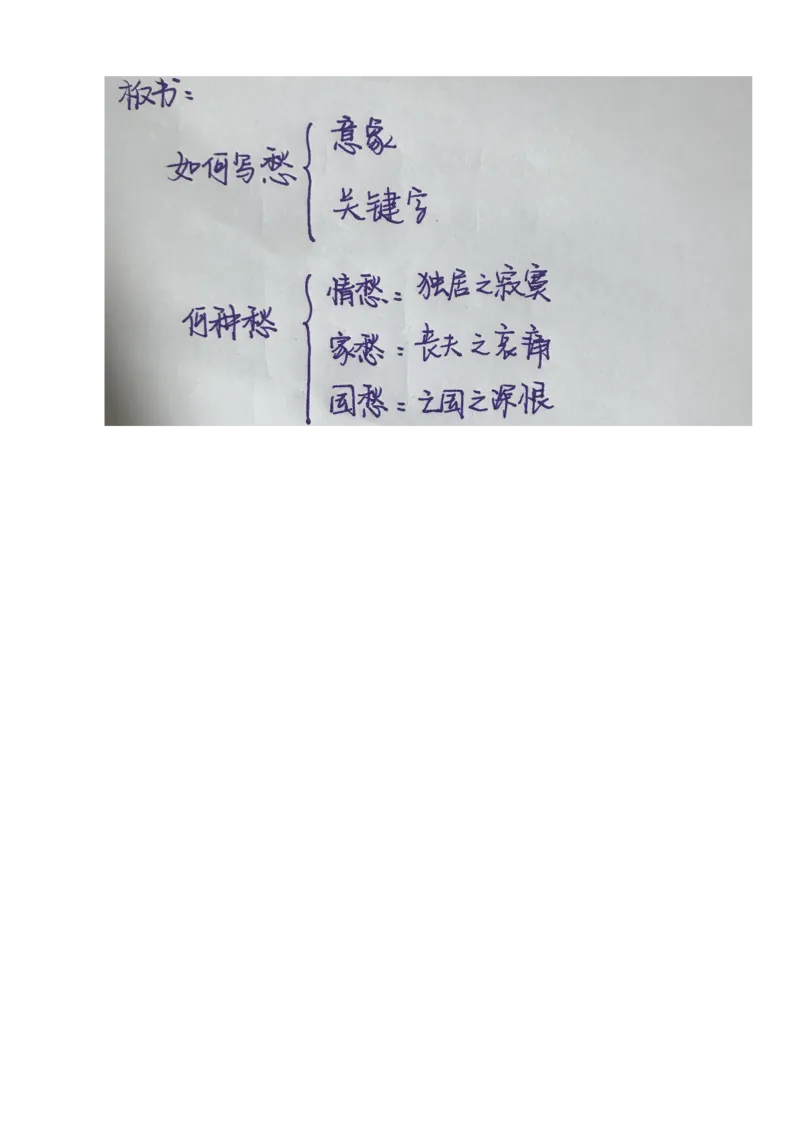 板书:
如何写愁
意象
关键字
何种愁
情愁: 独居之寂寞
家愁: 丧夫之哀痛
国愁: 亡国之深恨